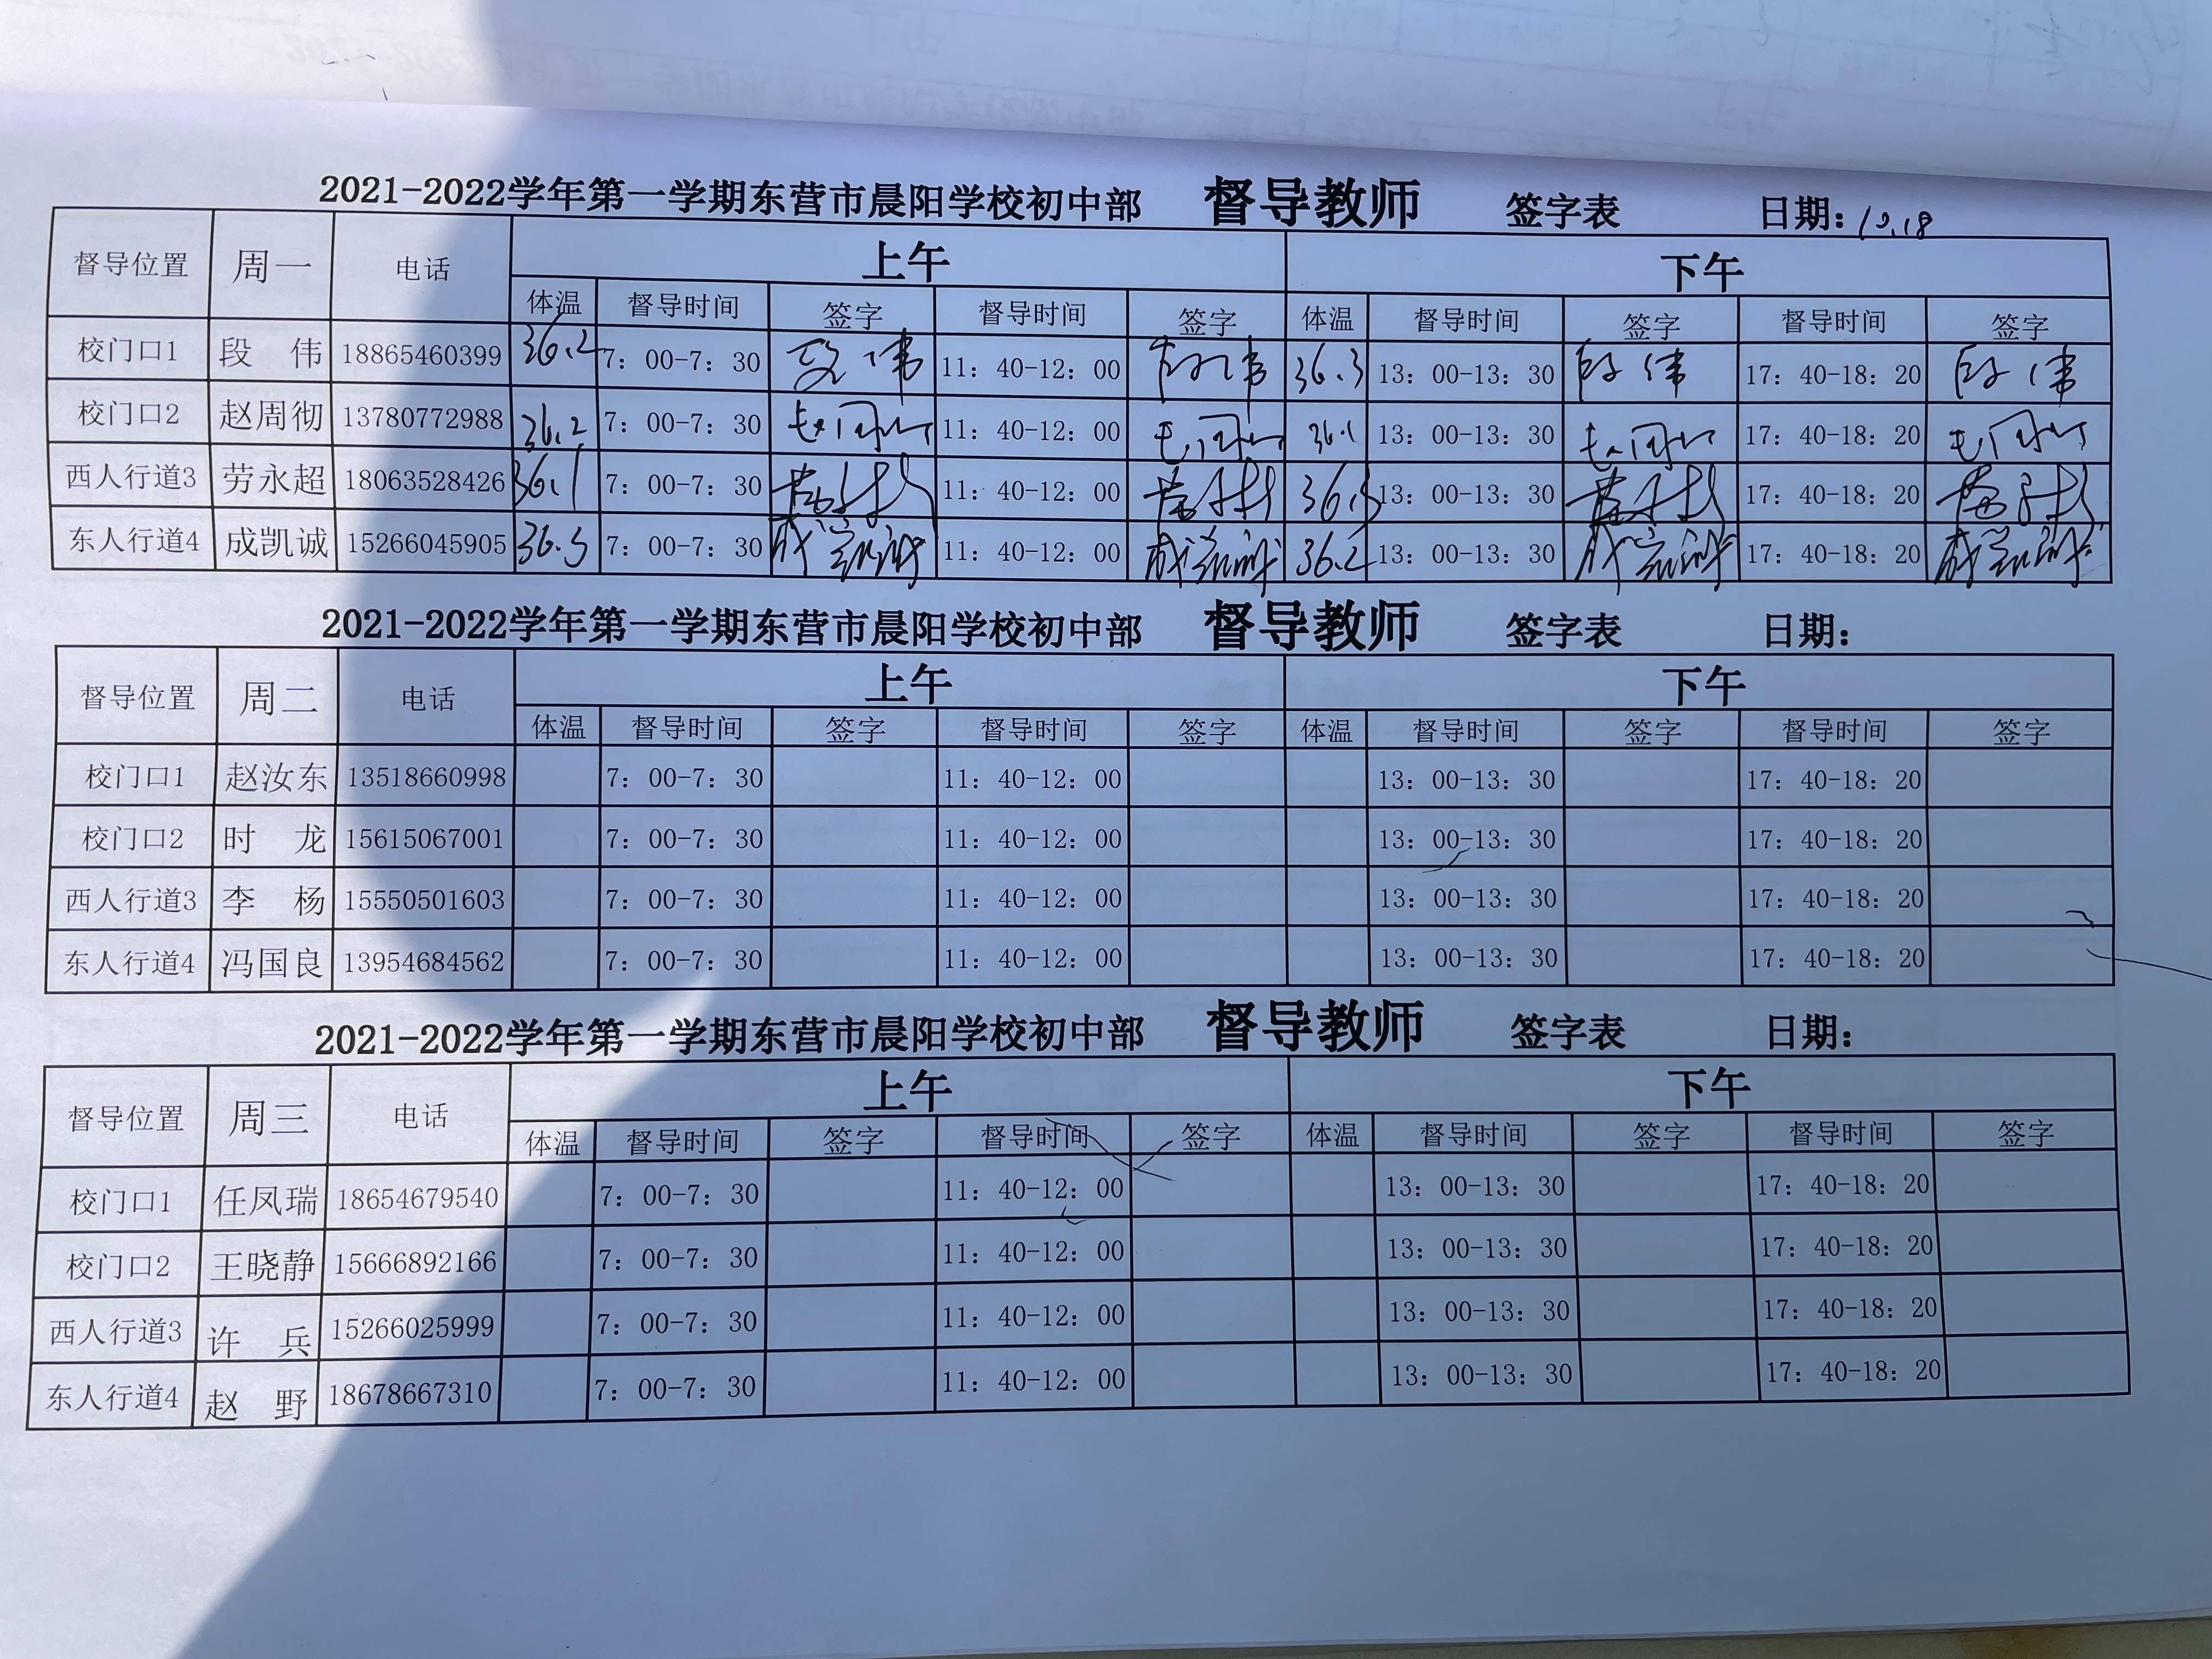 2021-2022学年第一学期东营市晨阳学校初中部 督导教师 签字表 日期: 10.18
督导位置 周一 电话 上午 下午
体温 督导时间 签字 督导时间 签字 体温 督导时间 签字 督导时间 签字
校门口1 段 伟 18865460399 36.2 7: 00-7: 30 段伟 11: 40-12: 00 段伟 36.3 13: 00-13: 30 段伟 17: 40-18: 20 段伟
校门口2 赵周彻 13780772988 36.2 7: 00-7: 30 11: 40-12: 00 36.1 13: 00-13: 30 17: 40-18: 20
西人行道3 劳永超 18063528426 36.1 7: 00-7: 30 11: 40-12: 00 36.3 13: 00-13: 30 17: 40-18: 20
东人行道4 成凯诚 15266045905 36.3 7: 00-7: 30 成凯诚 11: 40-12: 00 成凯诚 36.2 13: 00-13: 30 成凯诚 17: 40-18: 20 成凯诚
2021-2022学年第一学期东营市晨阳学校初中部 督导教师 签字表 日期:
督导位置 周二 电话 上午 下午
体温 督导时间 签字 督导时间 签字 体温 督导时间 签字 督导时间 签字
校门口1 赵汝东 13518660998 7: 00-7: 30 11: 40-12: 00 13: 00-13: 30 17: 40-18: 20
校门口2 时 龙 15615067001 7: 00-7: 30 11: 40-12: 00 13: 00-13: 30 17: 40-18: 20
西人行道3 李 杨 15550501603 7: 00-7: 30 11: 40-12: 00 13: 00-13: 30 17: 40-18: 20
东人行道4 冯国良 13954684562 7: 00-7: 30 11: 40-12: 00 13: 00-13: 30 17: 40-18: 20
2021-2022学年第一学期东营市晨阳学校初中部 督导教师 签字表 日期:
督导位置 周三 电话 上午 下午
体温 督导时间 签字 督导时间 签字 体温 督导时间 签字 督导时间 签字
校门口1 任凤瑞 18654679540 7: 00-7: 30 11: 40-12: 00 13: 00-13: 30 17: 40-18: 20
校门口2 王晓静 15666892166 7: 00-7: 30 11: 40-12: 00 13: 00-13: 30 17: 40-18: 20
西人行道3 许 兵 15266025999 7: 00-7: 30 11: 40-12: 00 13: 00-13: 30 17: 40-18: 20
东人行道4 赵 野 18678667310 7: 00-7: 30 11: 40-12: 00 13: 00-13: 30 17: 40-18: 20